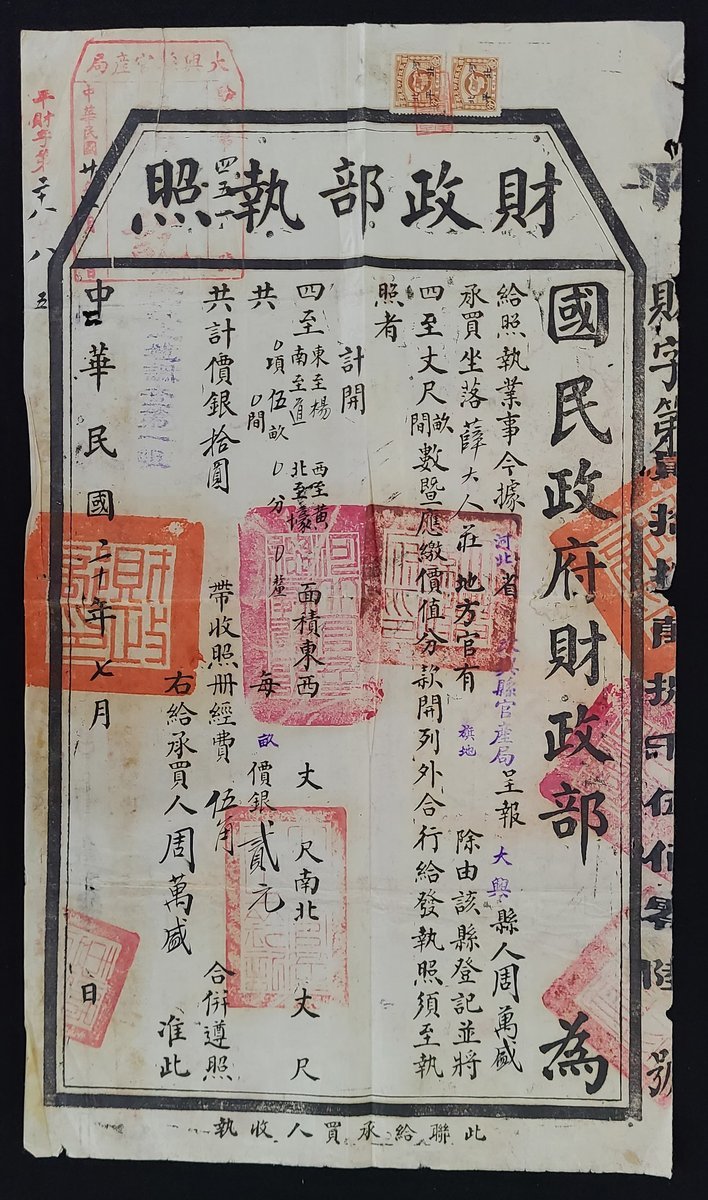 財政部執照
國民政府財政部 為
給照執業事今據 河北省 大興縣官產局 呈報 大興 縣人周萬盛
承買坐落薛大人莊 地方官有 旗地 除由該縣登記並將
四至丈尺畝間數暨應繳價值分款開列外合行給發執照須至執
照者
計開
四至 東至楊 南至道 西至黃 北至 面積東西 丈 尺南北 丈 尺
共 0項伍畝0分0釐 0間 每 畝 價銀貳元
共計價銀拾圓 帶收照册經費 伍角 合併遵照
右給承買人周萬盛 准此
中華民國二十年七月 日
此聯給承買人收執
財字第 拾 萬捌 伍佰零陸 號
大興縣官產局
中華民國廿
四五一
平財字第二十八八五